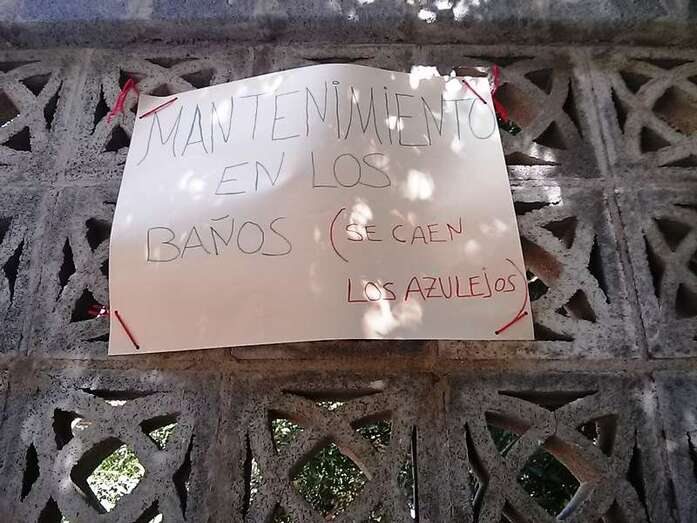 MANTENIMIENTO
EN LOS
BAÑOS (SE CAEN
LOS AZULEJOS)